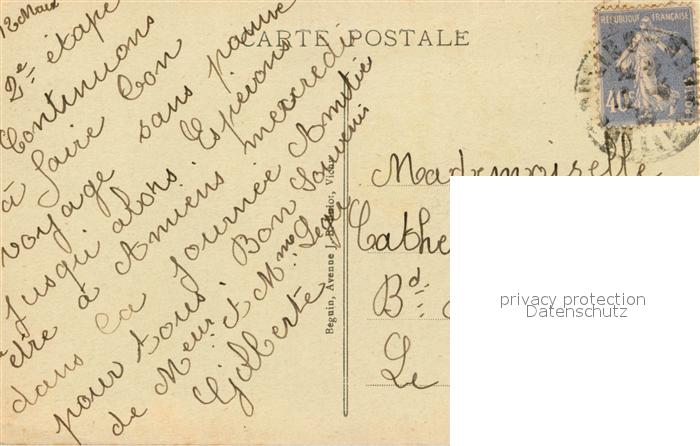 12 Mars
2e étape
Continuons
à faire bon
voyage sans panne
jusqu'alors. Espérons
être à Amiens mercredi
dans la journée Amitié
pour tous. Bon Souvenir
de Meur et Mme
Gilberte
CARTE POSTALE
Beguin, Avenue J. Vichy
RÉPUBLIQUE FRANÇAISE
40c
Mademoiselle
Cathe
Bd
Le
privacy protection
Datenschutz